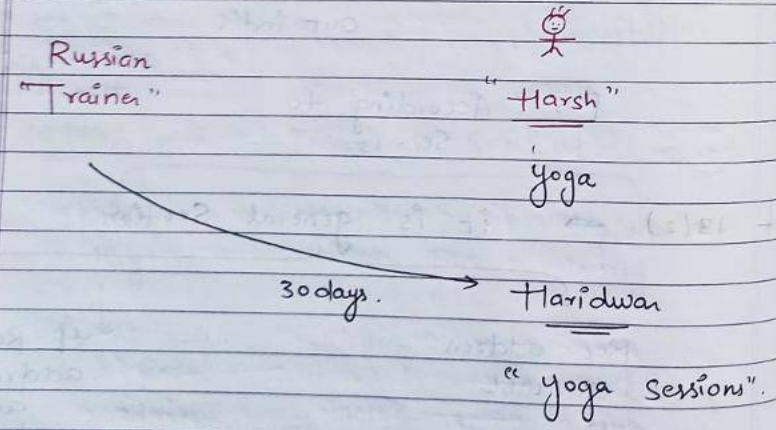 Russian
"Trainer"
"Harsh"
Yoga
30 days.
Haridwar
"Yoga Sessions".